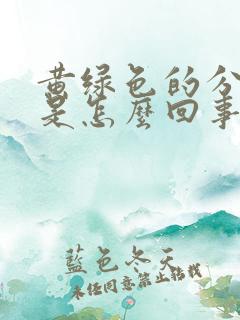 黄绿色的分
是怎麼回事
藍色冬天
未经同意禁止转载